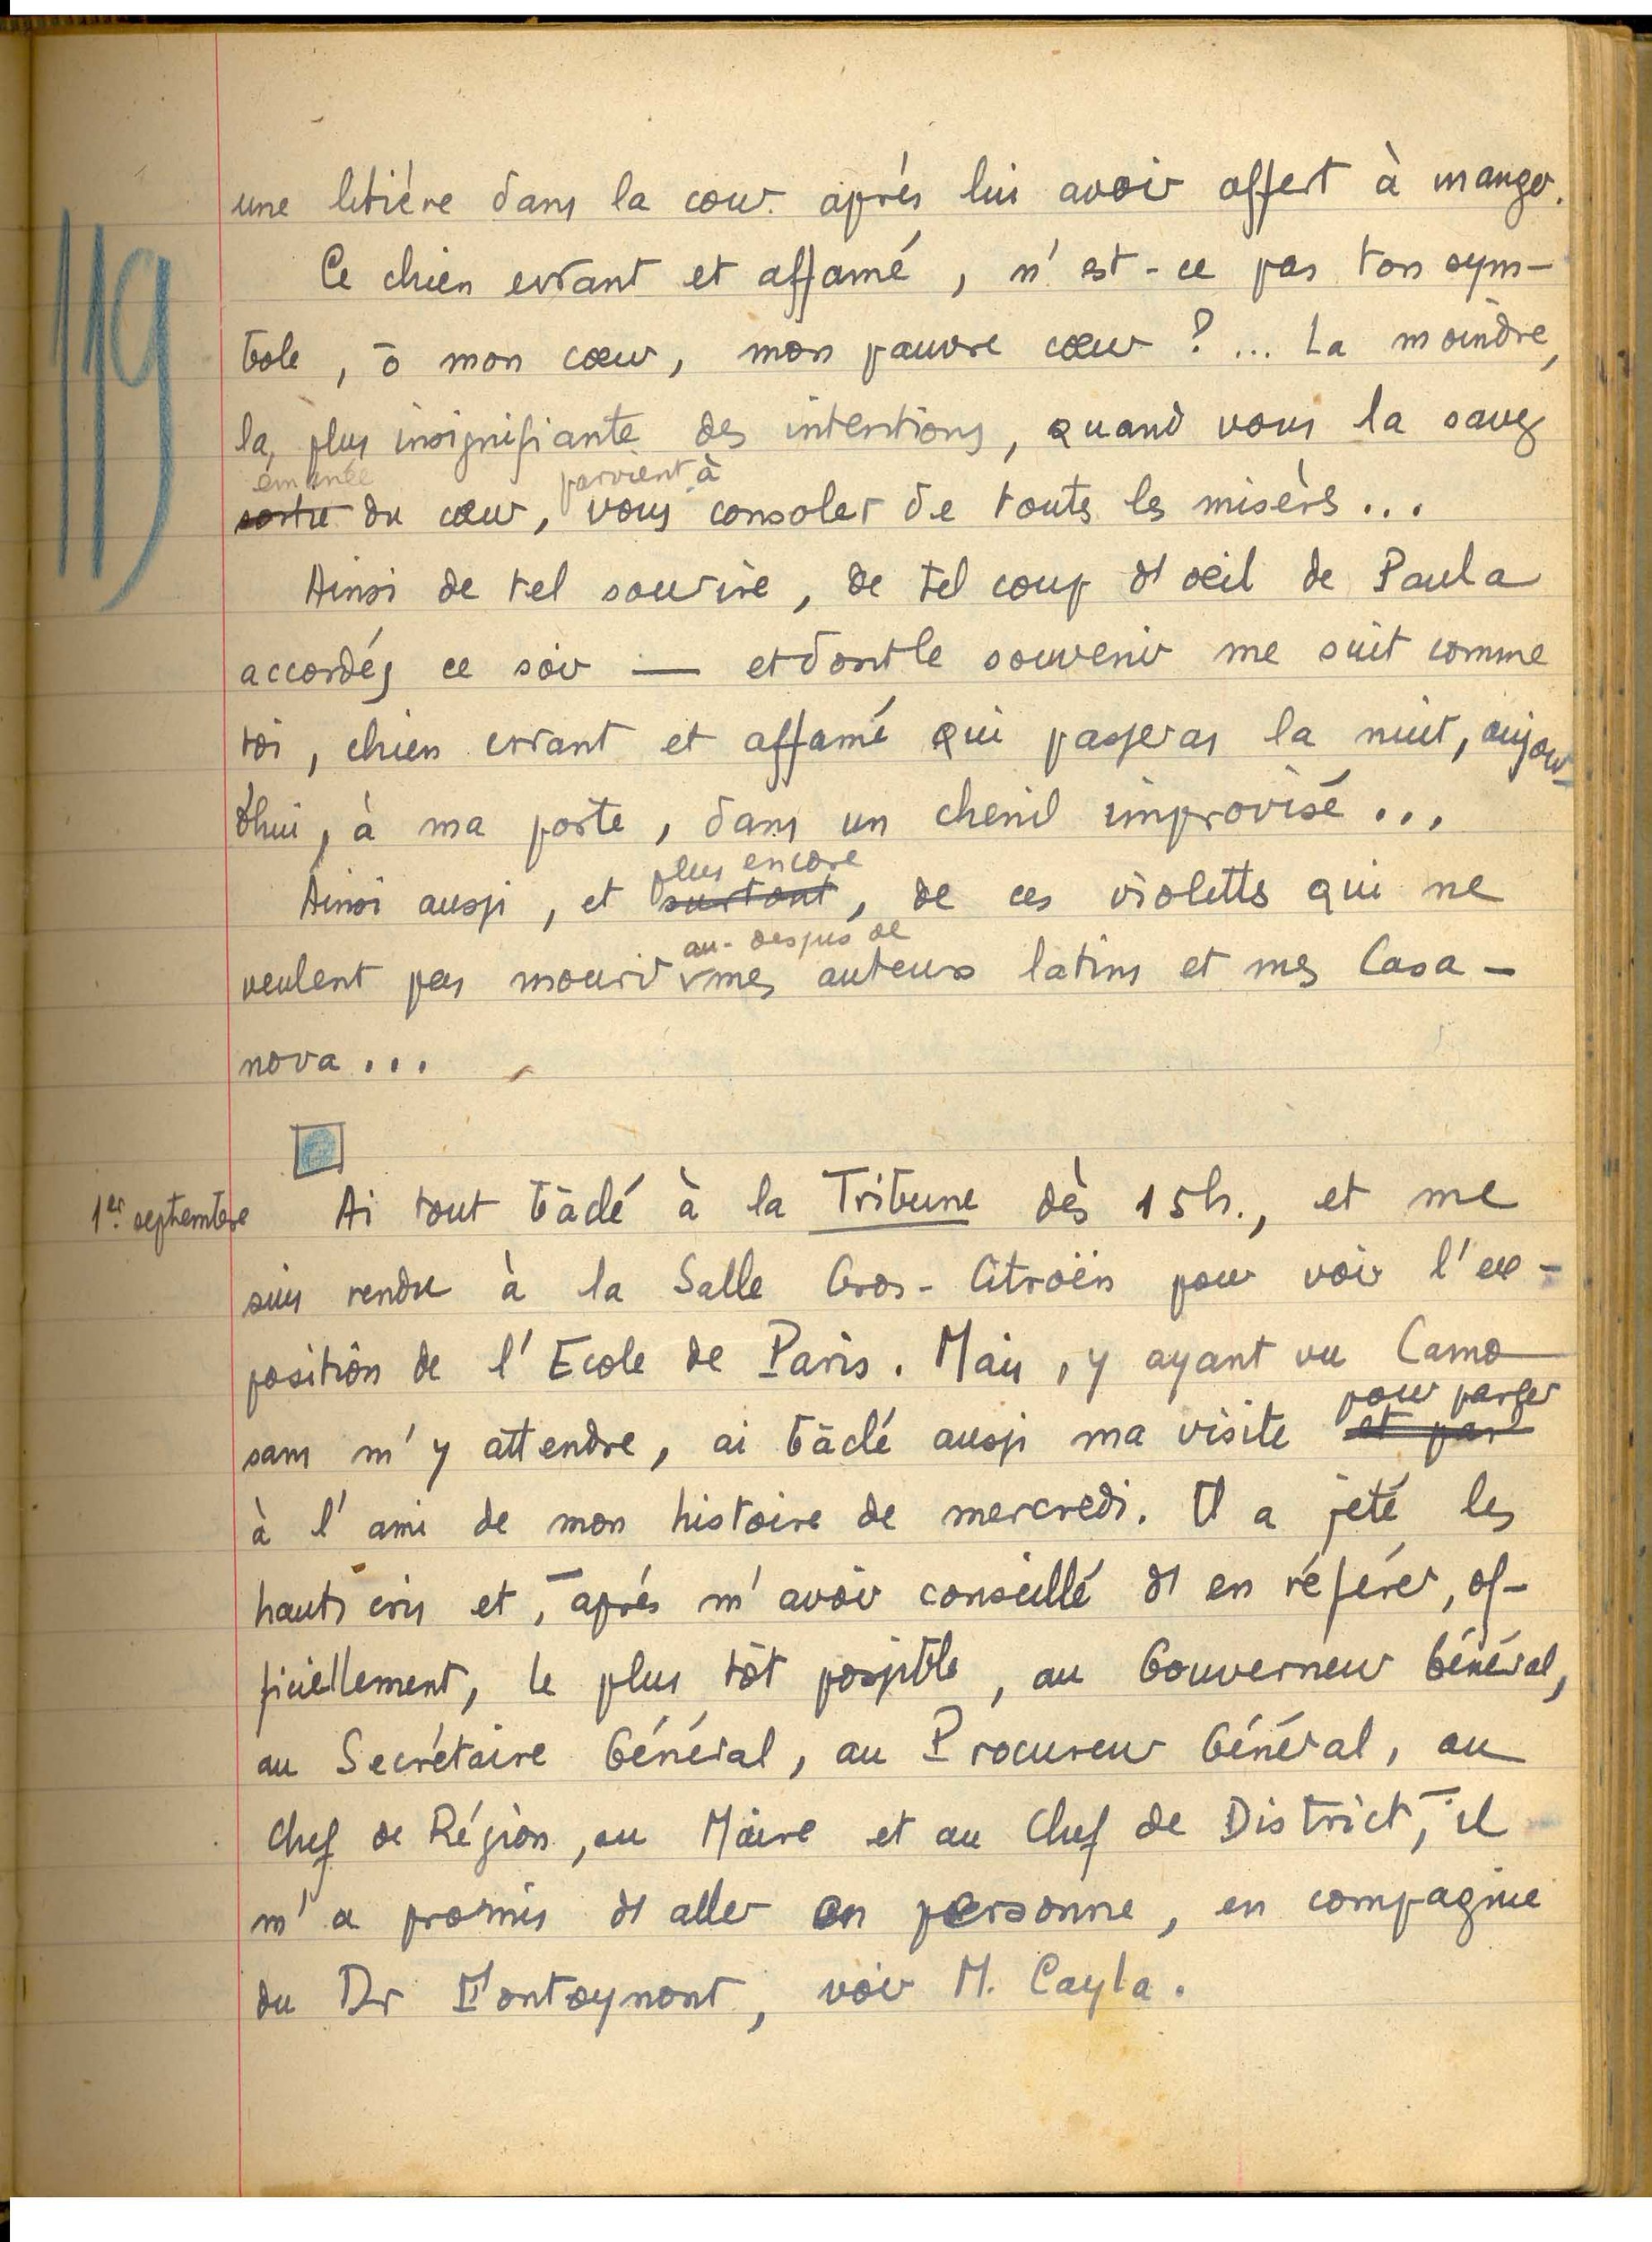 119
une litière dans la cour après lui avoir offert à manger.
Ce chien errant et affamé, n'est-ce pas ton sym-
bole, ô mon cœur, mon pauvre cœur ?... La moindre,
la plus insignifiante des intentions, quand vous la savez
émanée parvient à
sortie du cœur, vous consoler de toutes les misères...
Ainsi de tel sourire, de tel coup d'œil de Paula
accordés ce soir — et dont le souvenir me suit comme
toi, chien errant et affamé qui passeras la nuit, aujour-
d'hui, à ma porte, dans un chenil improvisé...
plus encore
Ainsi aussi, et surtout, de ces violettes qui ne
au-dessus de
veulent pas mourir mes auteurs latins et mes Casa-
nova...
1er septembre Ai tout bâclé à la Tribune dès 15h., et me
suis rendu à la Salle Gros-Citroën pour voir l'ex-
position de l'Ecole de Paris. Mais, y ayant vu Camo
pour parler
sans m'y attendre, ai bâclé aussi ma visite et parl
à l'ami de mon histoire de mercredi. Il a jeté les
hauts cris et, — après m'avoir conseillé d'en référer, of-
ficiellement, le plus tôt possible, au Gouverneur Général,
au Secrétaire Général, au Procureur Général, au
Chef de Région, au Maire et au Chef de District, — il
m'a promis d'aller en personne, en compagnie
du Dr Fontoynont, voir M. Cayla.